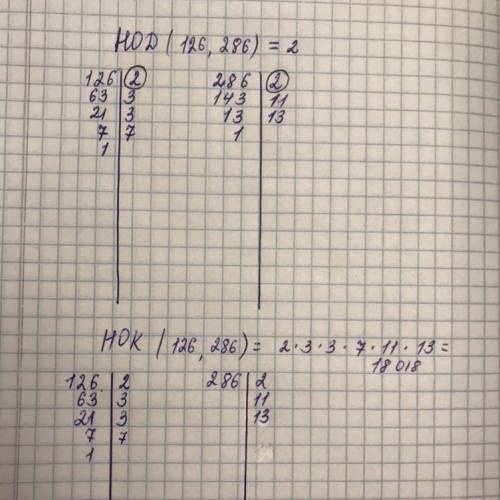 НОД (126, 286) = 2
126 | 2
63 | 3
21 | 3
7 | 7
1
286 | 2
143 | 11
13 | 13
1
НОК (126, 286) = 2·3·3·7·11·13 =
18018
126. | 2
63 | 3
21 | 3
7 | 7
1
286 | 2
11
13